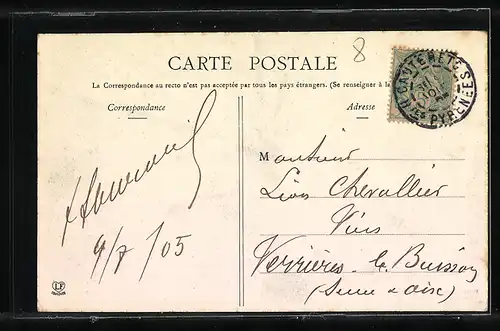 8
CARTE POSTALE
CAUTERETS
PYRENEES
La Correspondance au recto n'est pas acceptée par tous les pays étrangers. (Se renseigner à la
Correspondance
Adresse
9/7/05
Monsieur
Léon Chevallier
Vins
Verrières-le Buisson
(Seine & Oise)
LF